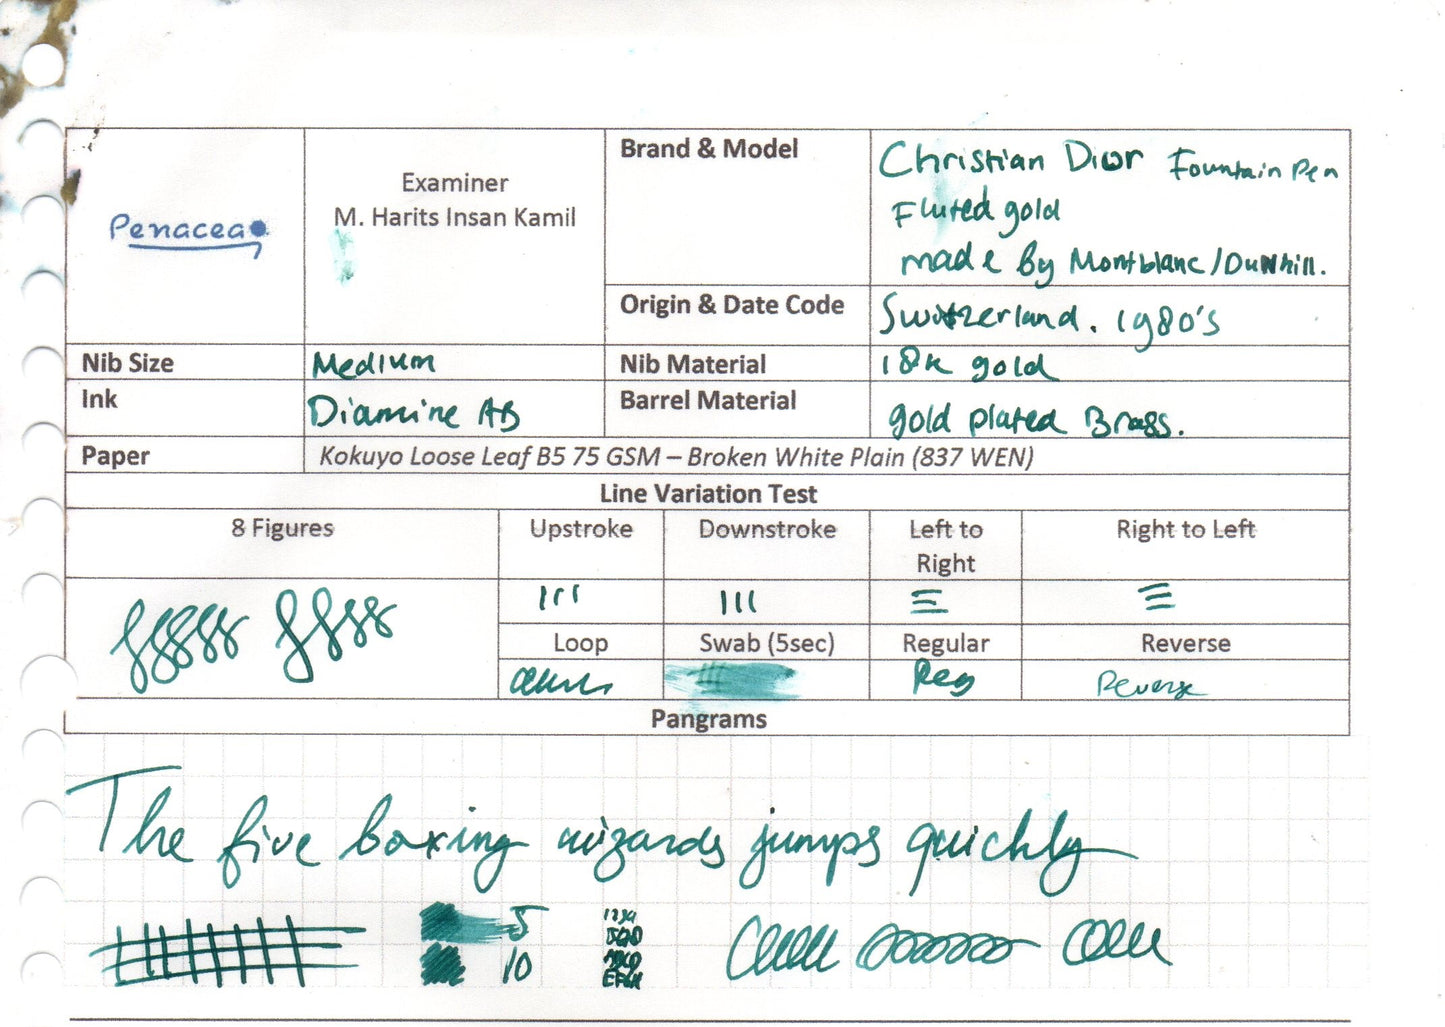 Penacea
Examiner
M. Harits Insan Kamil
Brand & Model
Christian Dior Fountain Pen
Fluted gold
made by Montblanc/Dunhill.
Origin & Date Code
Switzerland. 1980's
Nib Size
Medium
Nib Material
18k gold
Ink
Diamine AB
Barrel Material
gold plated Brass.
Paper
Kokuyo Loose Leaf B5 75 GSM – Broken White Plain (837 WEN)
Line Variation Test
8 Figures
Upstroke
Downstroke
Left to
Right
Right to Left
Loop
Swab (5sec)
Regular
Reverse
Reg
Reverse
Pangrams
The five boxing wizards jumps quickly
5
10
1234